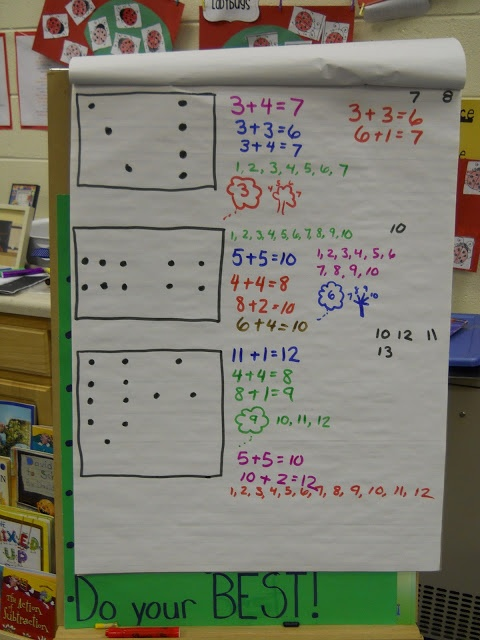 LADYBUGS
7 8
3+4=7
3+3=6
3+4=7
1, 2, 3, 4, 5, 6, 7
3
3+3=6
6+1=7
1, 2, 3, 4, 5, 6, 7, 8, 9, 10
10
5+5=10
4+4=8
8+2=10
6+4=10
1, 2, 3, 4, 5, 6
7, 8, 9, 10
6
10 12 11
13
11+1=12
4+4=8
8+1=9
9 10, 11, 12
5+5=10
10+2=12
1, 2, 3, 4, 5, 6, 7, 8, 9, 10, 11, 12
Do your BEST!
MIXED
UP
The Action of
Subtraction